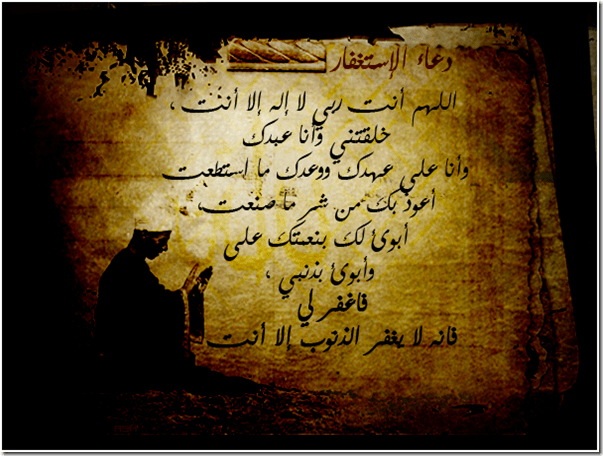 دعاء الإستغفار
اللهم أنت ربي لا إله إلا أنت ،
خلقتني وأنا عبدك
وأنا على عهدك ووعدك ما استطعت
أعوذ بك من شر ما صنعت،
أبوئ لك بنعمتك على
وأبوئ بذنبي ،
فاغفر لي
فانه لا يغفر الذنوب إلا أنت